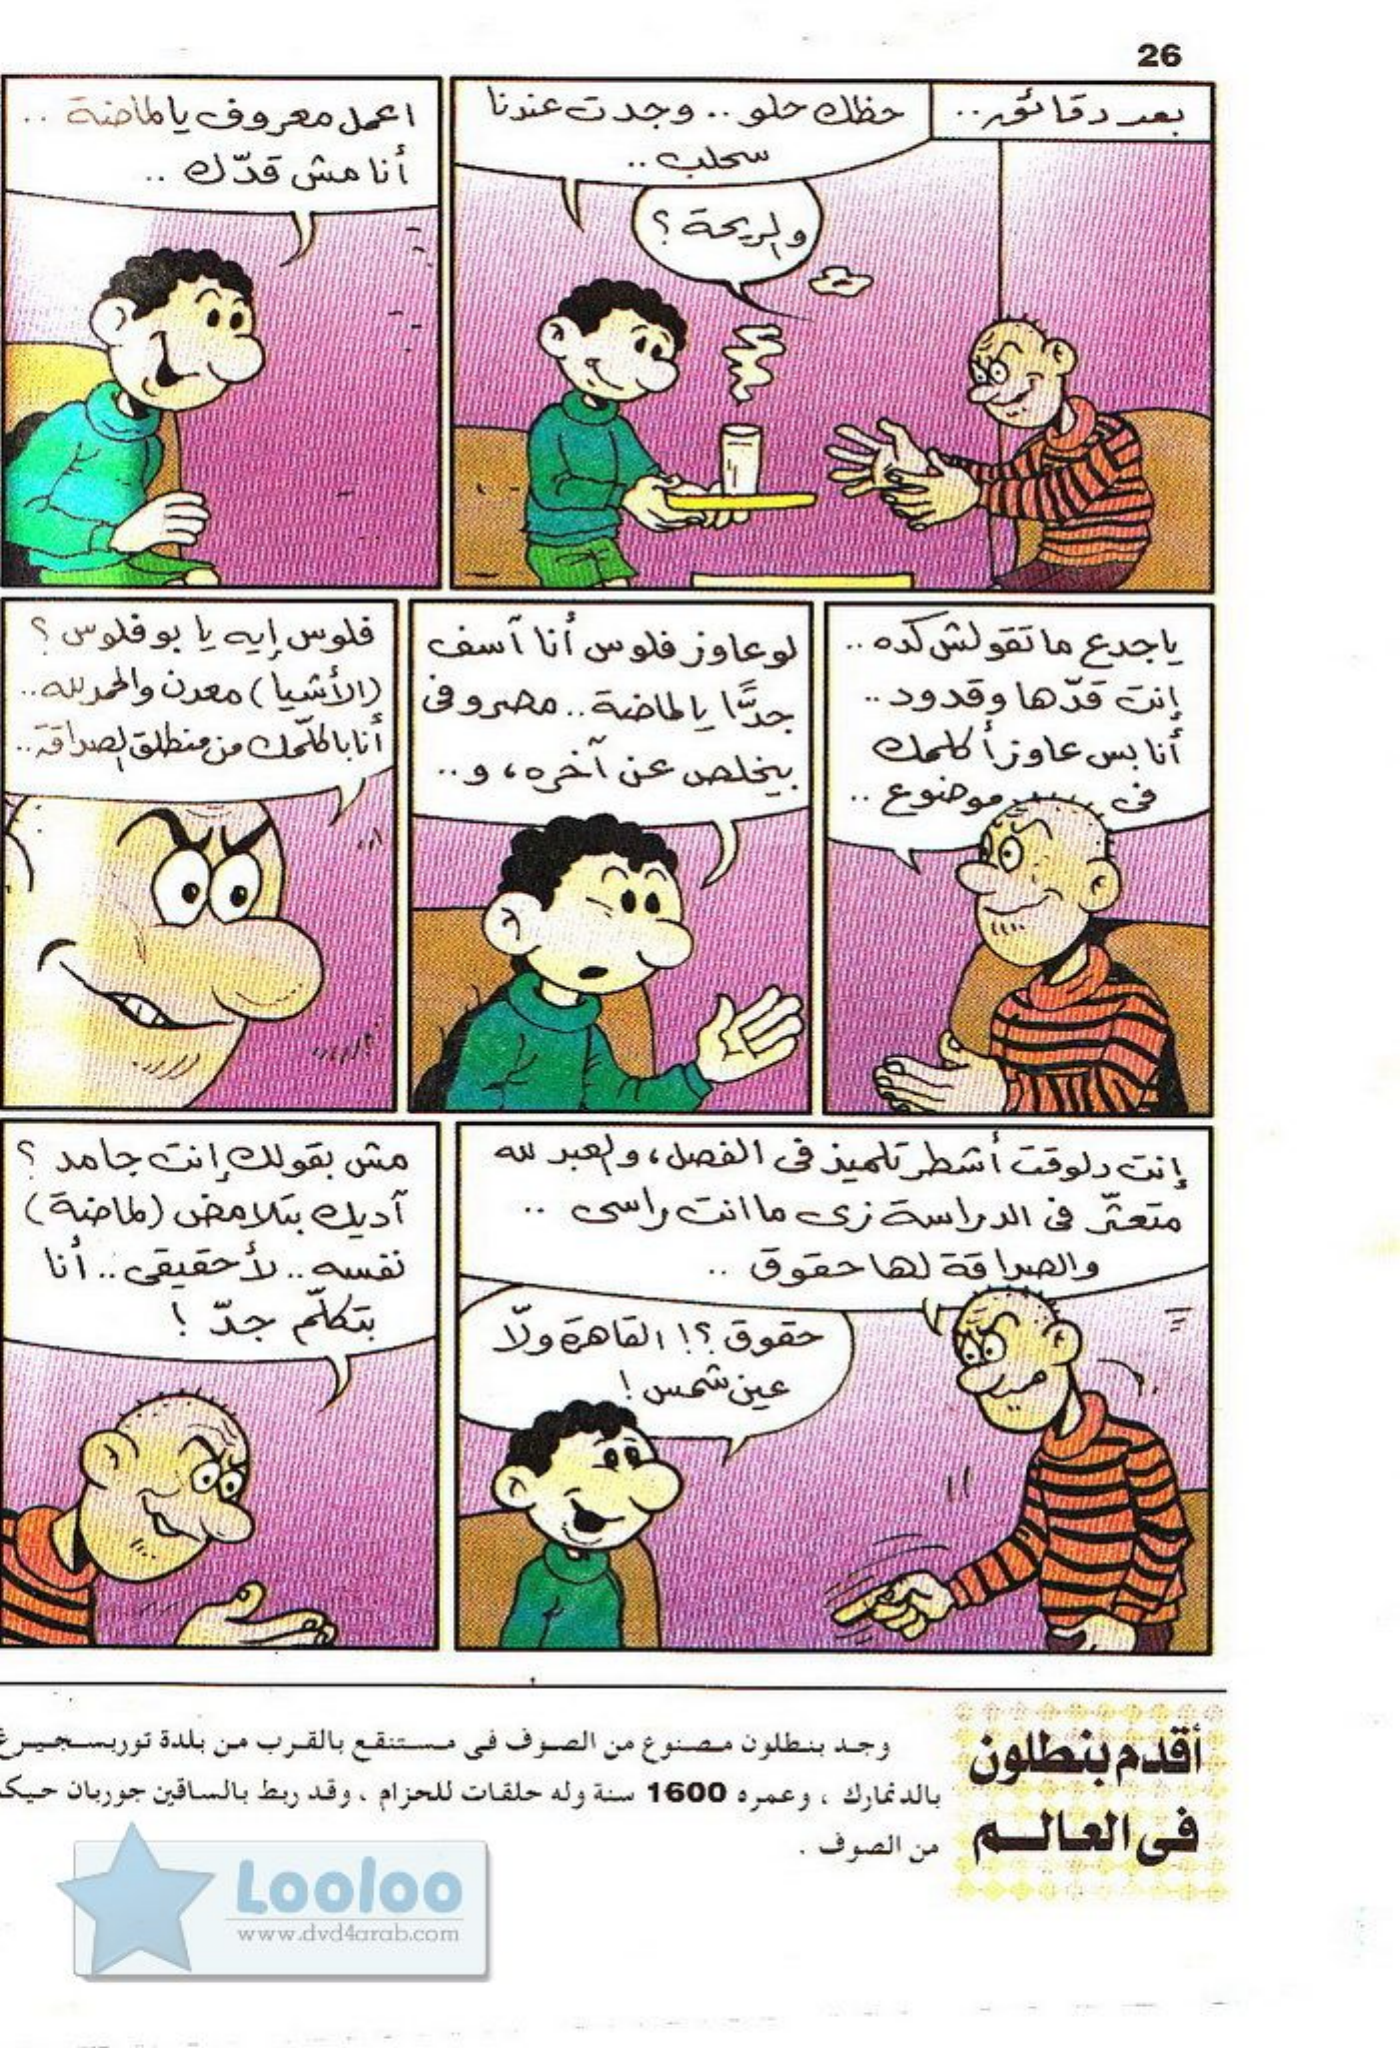 26
بعد دقائق..
حظك حلو.. وجدت عندنا
سحلب..
والريحة؟
اعمل معروف يا لماضة..
أنا مش قدّك..
ياجدع ما تقولش كده..
إنت قدّها وقدود..
أنا بس عاوز أكلمك
فى موضوع..
لو عاوز فلوس أنا آسف
جدًّا يا لماضة.. مصروفى
بيخلص عن آخره، و..
فلوس إيه يا بو فلوس؟
(الأشيا) معدن والحمد لله..
أنا باكلّمك من منطلق الصداقة..
إنت دلوقت أشطر تلميذ فى الفصل، والعبد لله
متعثّر فى الدراسة زى ما انت راسى..
والصداقة لها حقوق..
حقوق؟! القاهرة ولّا
عين شمس!
مش بقولك إنت جامد؟
آديك بتلامض (لماضة)
نفسه.. لأ حقيقى.. أنا
بتكلّم جدّ!
أقدم بنطلون
فى العالم
وجد بنطلون مصنوع من الصوف فى مستنقع بالقرب من بلدة توربسجيرغ
بالدنمارك ، وعمره 1600 سنة وله حلقات للحزام ، وقد ربط بالساقين جوربان حيكا
من الصوف .
Looloo
www.dvd4arab.com